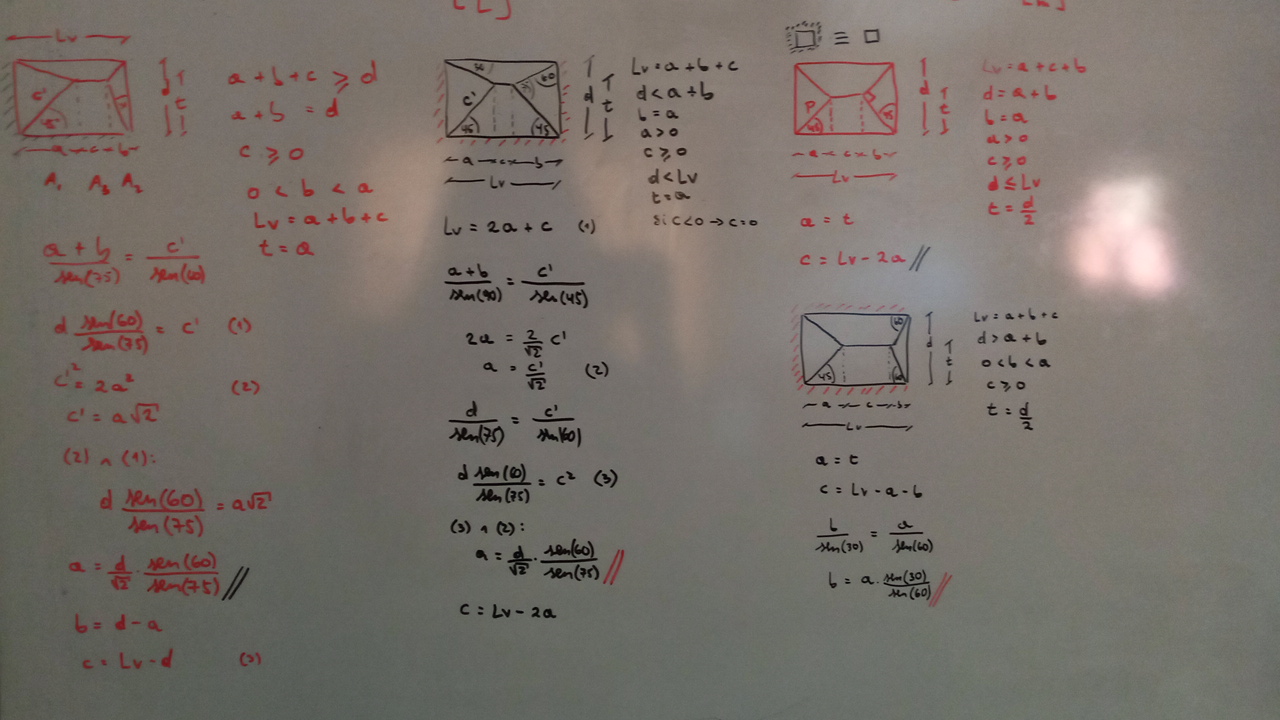 Lv
c'
45
d
t
a c b
A₁ A₃ A₂
a + b + c ⩾ d
a + b = d
c ⩾ 0
0 < b < a
Lv = a + b + c
t = a
a + b / sen(75) = c' / sen(60)
d sen(60) / sen(75) = c' (1)
c'² = 2a² (2)
c' = a√2
(2) ∧ (1):
d sen(60) / sen(75) = a√2
a = d/√2 · sen(60) / sen(75) //
b = d - a
c = Lv - d (3)
c'
60
45
45
d
t
a c b
Lv
Lv = a + b + c
d < a + b
b = a
a > 0
c ⩾ 0
d < Lv
t = a
si c < 0 → c = 0
Lv = 2a + c (1)
a + b / sen(90) = c' / sen(45)
2a = 2/√2 c'
a = c'/√2 (2)
d / sen(75) = c' / sen(60)
d sen(60) / sen(75) = c² (3)
(3) ∧ (2):
a = d/√2 · sen(60) / sen(75) //
c = Lv - 2a
□ ≡ □
45
45
d
t
a c b
Lv
Lv = a + c + b
d = a + b
b = a
a > 0
c ⩾ 0
d ≤ Lv
t = d/2
a = t
c = Lv - 2a //
60
45
60
d
t
a c b
Lv
Lv = a + b + c
d > a + b
0 < b < a
c ⩾ 0
t = d/2
a = t
c = Lv - a - b
b / sen(30) = a / sen(60)
b = a · sen(30) / sen(60) //